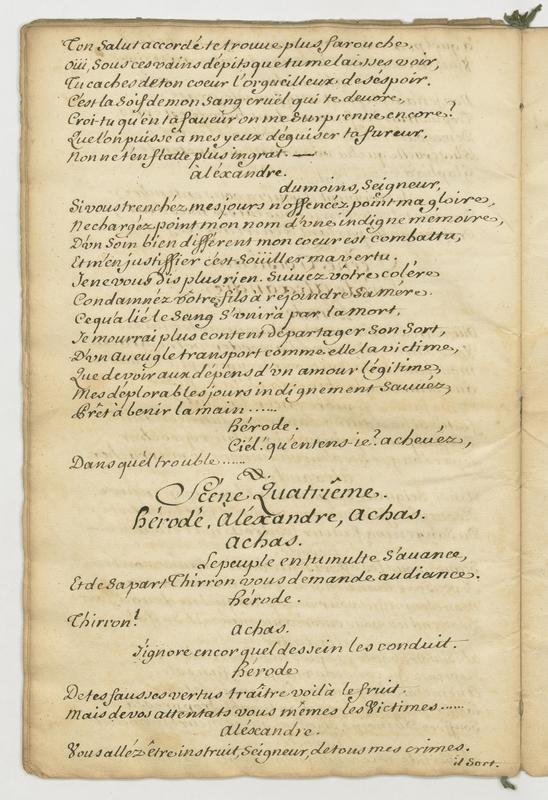 Ton salut accordé te trouue plus farouche,
oüi, sous ces vains dépits que tu me laisses voir,
Tu caches de ton coeur l'orgueilleux desespoir.
C'est la soif de mon sang cruël qui te deuore,
Croi-tu qu'en ta faueur on me surprenne encore?
Que l'on puisse à mes yeux déguiser ta fureur,
Non ne t'en flatte plus ingrat. —
aléxandre.
du moins, Seigneur,
Si vous trenchéz mes jours n'offencéz point ma gloire,
Ne chargéz point mon nom d'vne indigne mémoire,
D'vn soin bien différent mon coeur est combattu,
Et m'en justiffier c'est soüiller ma vertu.
Je ne vous dis plus rien. Suiuéz vôtre colére
Condamnéz vôtre fils à réjoindre sa mére.
Ce qu'a lié le sang s'vnira par la mort,
Je mourrai plus content de partager son sort,
D'vn aueugle transport comme elle la victime,
Que de voir aux dépens d'vn amour légitime,
Mes déplorables jours indignement sauuéz,
Prêt à benir la main ......
hérode.
Ciél! qu'entens-je? acheuéz,
Dans quél trouble ......
Scéne Quatriême.
hérode, aléxandre, achas.
achas.
Le peuple en tumulte s'auance,
Et de sa part Thirron vous demande audiance.
hérode.
Thirron!
achas.
J'ignore encor quel dessein les conduit.
hérode
De tes fausses vertus traître voilà le fruit.
Mais de vos attentats vous mêmes les victimes ......
aléxandre.
Vous alléz être instruit, Seigneur, de tous mes crimes.
il sort.